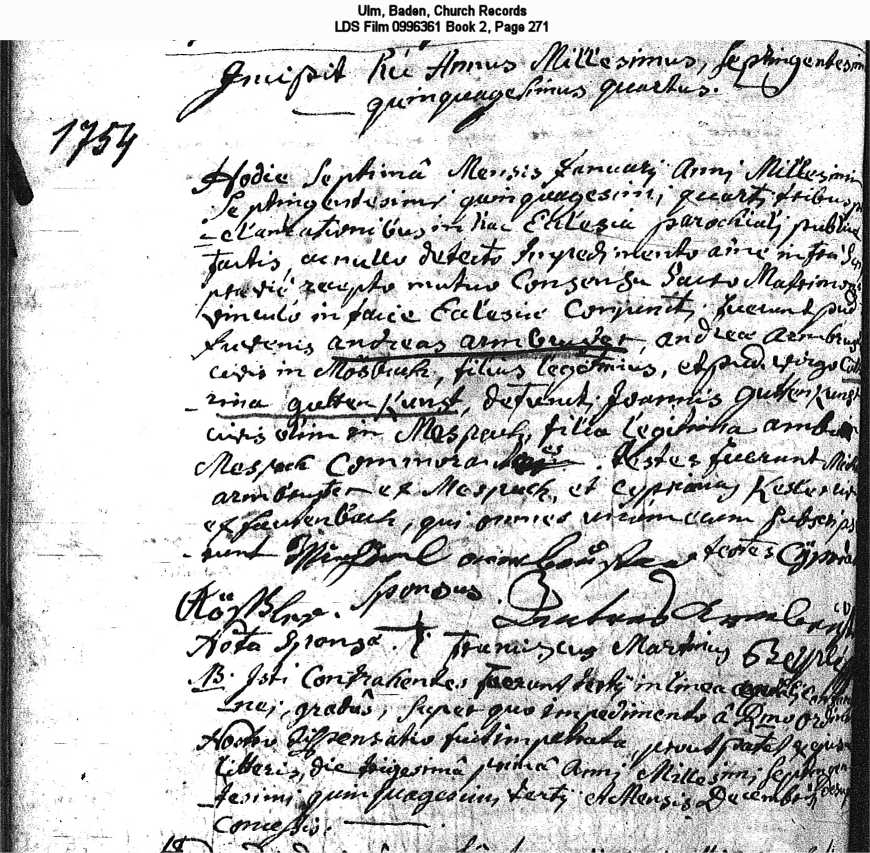 Ulm, Baden, Church Records
LDS Film 0996361 Book 2, Page 271
Incipit hic Annus Millesimus, Septingentesim
quinquagesimus quartus.
1754
Hodie Septimâ Mensis January Anni Millesimi
Septingentesimi quinquagesimi quarti tribus
clamationibus in hac Ecclesia parochiali publice
factis ac nullo detecto Impedimento a me infra
recepto mutuo Consensu Sacro Matrimon
vinculo in facie Ecclesiae Conjuncti fuerunt
Juvenis andreas armbruster, andreae Armbrus
civis in Mösbach, filius legitimus, et pud. virgo Cath
rina gutten Kunst, defuncti Joannis gutten Kunst
civis olim in Mespach, filia legitima ambo
Mespach Commorantes. testes fuerunt Mich
armbruster ex Mespach, et cyprianus Kesler
ex fautenbach, qui omnes unum cum subscrips
runt Michael armbruster testes Cÿpria
Kößler. Sponsus Andreas Armbrust
Nota Sponsa + franciscus Martinus
NB. Isti Contrahentes fuerunt tertij in linea
nei, gradûs, super quo impedimento â Rmo Ordin
Nostro dispensatio fuit impetrata, prout patet ex
litteris, die trigesimâ primâ Anni Millesimi Septingen
tesimi quinquagesimi tertij et Mensis Decembris
Concessis.